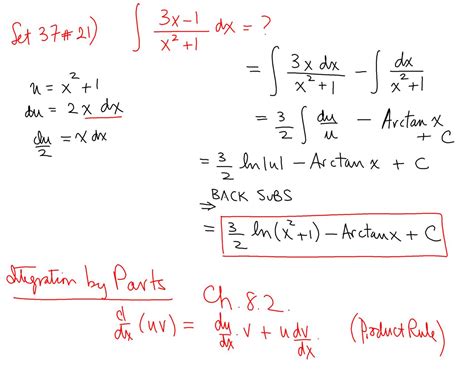 Set 37 # 21) ∫ (3x-1)/(x²+1) dx = ?
= ∫ (3x dx)/(x²+1) - ∫ dx/(x²+1)
u = x² + 1
du = 2x dx
du/2 = x dx
= 3/2 ∫ du/u - Arctan x + C
= 3/2 ln|u| - Arctan x + C
⇒ BACK SUBS
= 3/2 ln(x²+1) - Arctanx + C
Integration by Parts Ch. 8.2.
d/dx (uv) = du/dx · v + u dv/dx. (Product Rule)